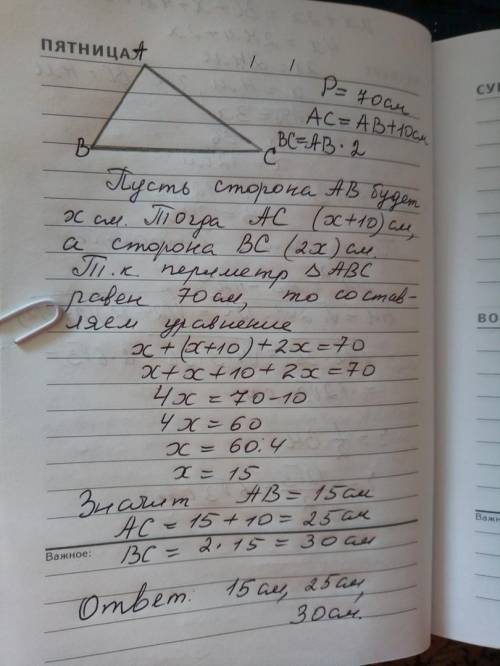 ПЯТНИЦА
A
B
C
P = 70см
AC = AB+10см
BC=AB·2
Пусть сторона AB будет
x см. Тогда AC (x+10)см,
а сторона BC (2x) см.
Т.к. периметр △ABC
равен 70см, то состав-
ляем уравнение
x+(x+10)+2x=70
x+x+10+2x=70
4x=70-10
4x=60
x=60:4
x=15
Значит AB=15см
AC=15+10=25см
Важное:
BC=2·15=30см
Ответ: 15см, 25см,
30см.
СУ
ВО
Важн